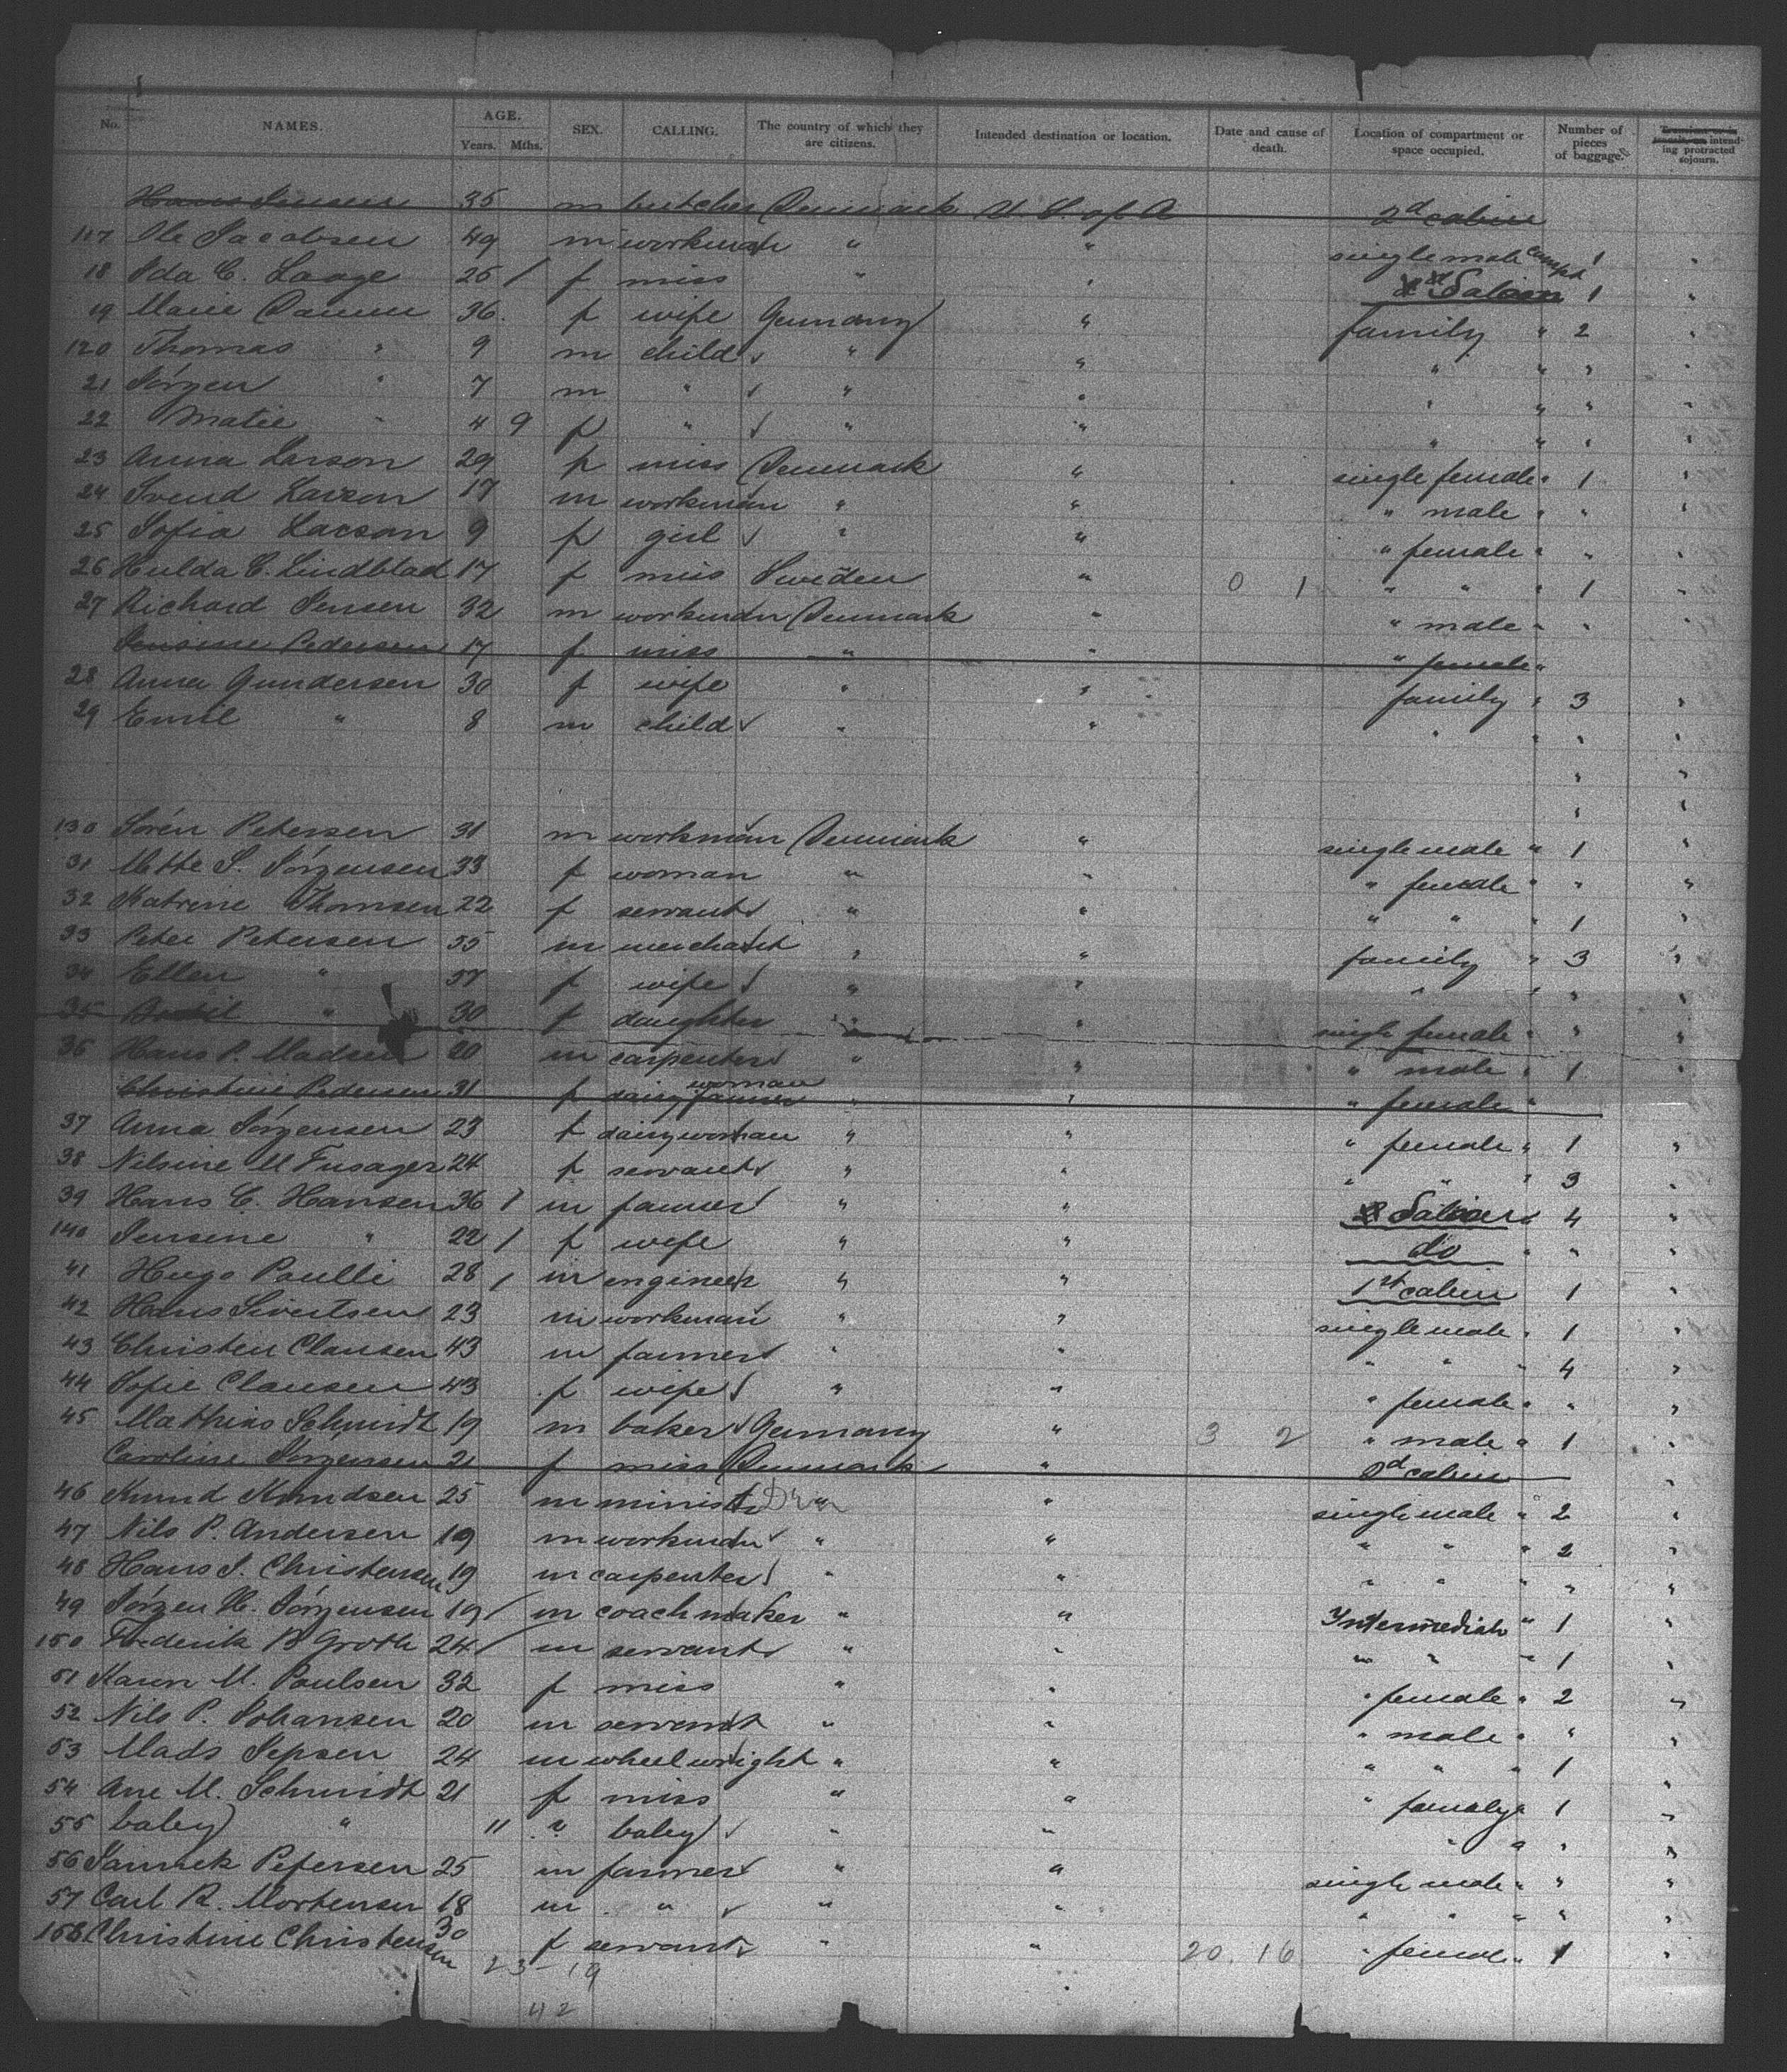 No. NAMES. AGE. Years. Mths. SEX. CALLING. The country of which they are citizens. Intended destination or location. Date and cause of death. Location of compartment or space occupied. Number of pieces of baggage. intending protracted sojourn.
Hans Jensen 35 m butcher Denmark U. S. of A 2d cabin
117 Ole Jacobsen 49 m workman " " single male compt 1 "
18 Ida C. Laage 25 / f miss " " Saloon 1 "
19 Marie Damm 36 f wife Germany " family " 2 "
120 Thomas " 9 m child " " " " " "
21 Jörgen " 7 m " " " " " " "
22 Matie " 4 9 f " " " " " " "
23 Anna Larson 29 f miss Denmark " single female " 1 "
24 Svend Larson 17 m workman " " " male " " "
25 Sofia Larson 9 f girl " " " female " " "
26 Hulda C. Lindblad 17 f miss Sweden " 0 1 " " " 1 "
27 Richard Jensen 32 m workman Denmark " " male " " "
Jensine Pedersen 17 f miss " " " female "
28 Anna Gundersen 30 f wife " " family " 3 "
29 Emil " 8 m child " " " " " "
" "
" "
130 Sören Petersen 31 m workman Denmark " single male " 1 "
31 Mette S. Jörgensen 33 f woman " " " female " " "
32 Katrine Thomsen 22 f servant " " " " " 1 "
33 Peter Petersen 55 m merchant " " family " 3 "
34 Ellen " 57 f wife " " " " " "
35 " 30 f daughter " " single female " " "
36 Hans P. Madsen 20 m carpenter " " " male " 1 "
Christine Pedersen 31 f dairy farmer woman " " " female "
37 Anna Jörgensen 23 f dairywoman " " " female " 1 "
38 Nilsine M Fusager 24 f servant " " " " " 3 "
39 Hans C. Hansen 36 / m farmer " " Saloon " 4 "
140 Jensine " 22 / f wife " " do " " "
41 Hugo Paulli 28 / m engineer " " 1st cabin 1 "
42 Hans Sivertsen 23 m workman " " single male " 1 "
43 Christen Clausen 43 m farmer " " " " " 4 "
44 Sofie Clausen 43 f wife " " " female " " "
45 Mathias Schmidt 19 m baker Germany " 3 2 " male " 1 "
Caroline Jörgensen 21 f miss Denmark " 2d cabin "
46 Knud Knudsen 25 m minister " " single male " 2 "
47 Nils P. Andersen 19 m workman " " " " " 2 "
48 Hans J. Christensen 19 m carpenter " " " " " " "
49 Jörgen H. Jörgensen 19 / m coachmaker " " Intermediate " 1 "
150 Frederik B Groth 24 / m servant " " " " " 1 "
51 Karen M. Paulsen 32 f miss " " " female " 2 "
52 Nils P. Johansen 20 m servant " " " male " " "
53 Mads Jepsen 24 m wheelwright " " " " " 1 "
54 Ane M. Schmidt 21 f miss " " " family " 1 "
55 baby " 11 " baby " " " " " "
56 Petersen 25 m farmer " " single male " " "
57 Carl R. Mortensen 18 m " " " " " " " "
158 Christine Christensen 30 f servant " " 20. 16 " female " 1 "
23 - 19
42